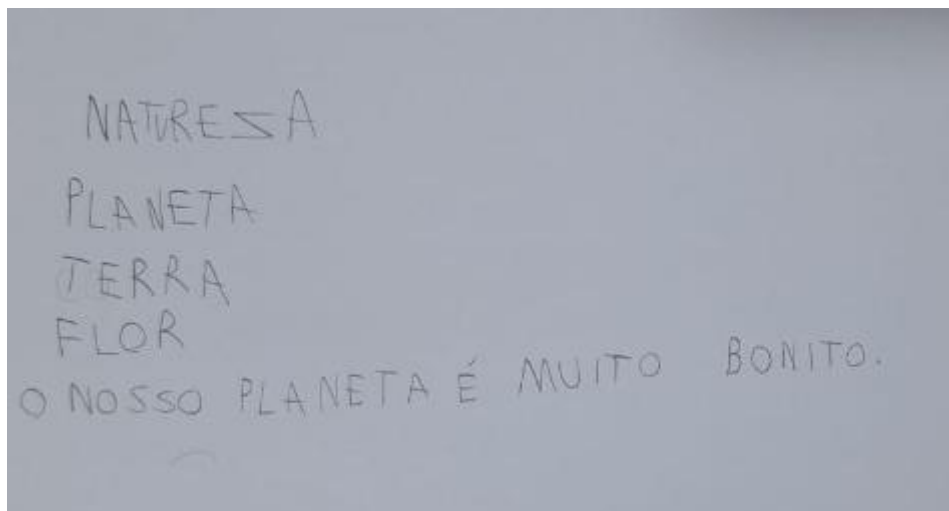 NATURESA
PLANETA
TERRA
FLOR
O NOSSO PLANETA É MUITO BONITO.